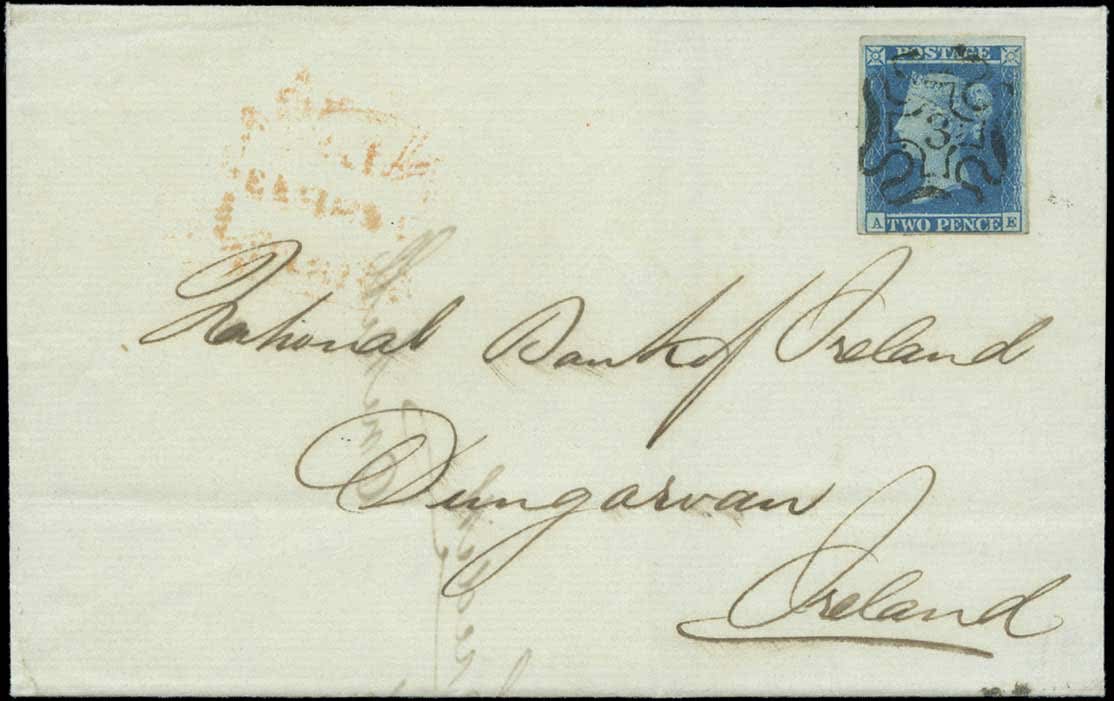 POSTAGE
3
A TWO PENCE E
National Bank of Ireland
Dungarvan
Ireland